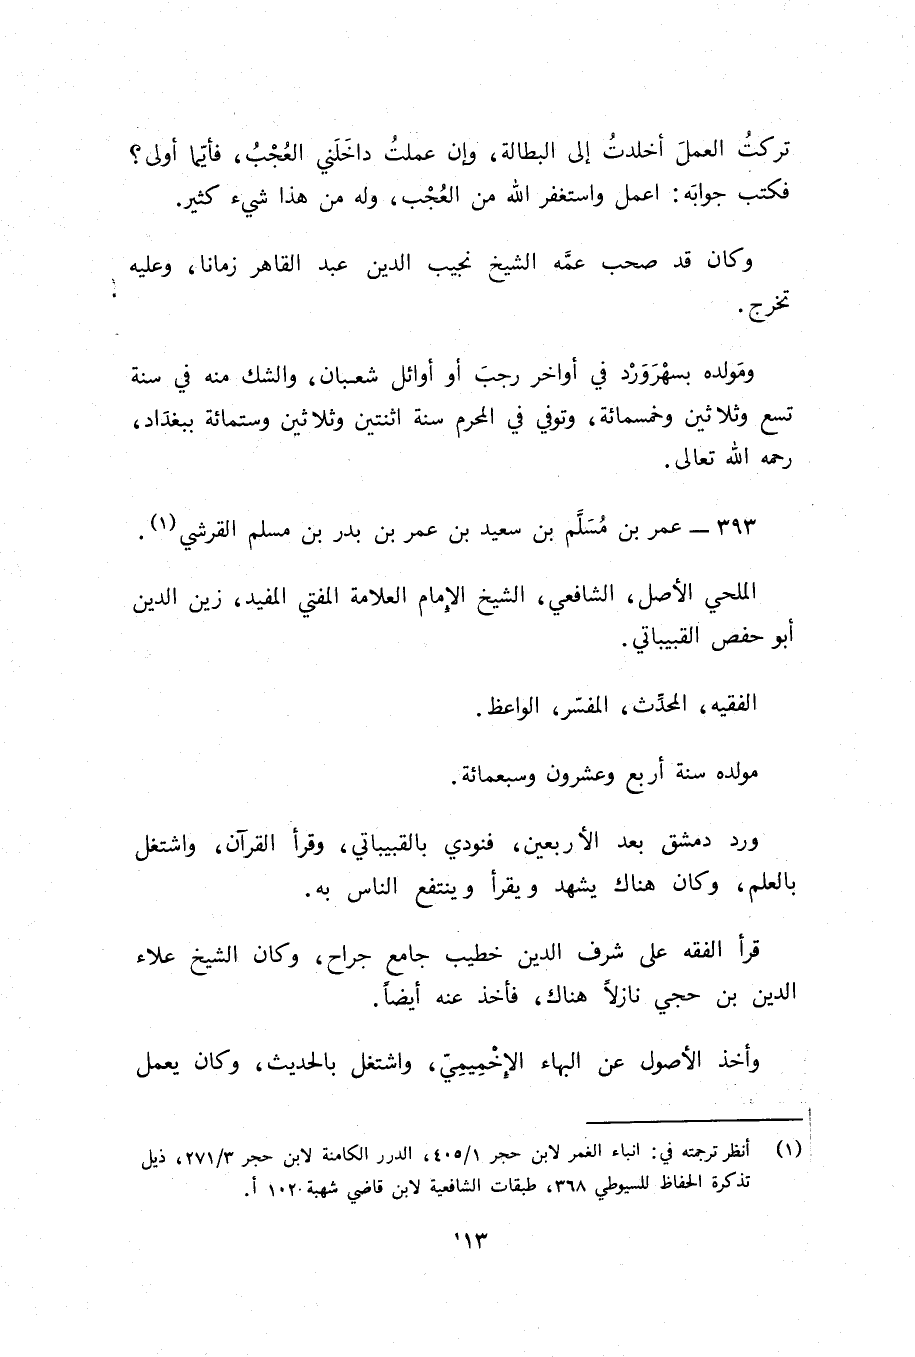 تركتُ العملَ أخلدتُ إلى البطالة، وإن عملتُ داخَلَني العُجْبُ، فأيّما أولى؟
فكتب جوابَه: اعمل واستغفر الله من العُجْب، وله من هذا شيء كثير.
وكان قد صحب عمَّه الشيخ نجيب الدين عبد القاهر زمانا، وعليه
تخرج.
ومَولده بسهْرَوَرْد في أواخر رجبَ أو أوائل شعبان، والشك منه في سنة
تسع وثلاثين وخمسمائة، وتوفي في المحرم سنة اثنتين وثلاثين وستمائة ببغدَاد،
رحمه الله تعالى.
٣٩٣ ــ عمر بن مُسَلَّم بن سعيد بن عمر بن بدر بن مسلم القرشي(١).
الملحي الأصل، الشافعي، الشيخ الإمام العلامة المفتي المفيد، زين الدين
أبو حفص القبيباتي.
الفقيه، المحدِّث، المفسّر، الواعظ.
مولده سنة أربع وعشرون وسبعمائة.
ورد دمشق بعد الأربعين، فنودي بالقبيباتي، وقرأ القرآن، واشتغل
بالعلم، وكان هناك يشهد ويقرأ وينتفع الناس به.
قرأ الفقه على شرف الدين خطيب جامع جراح، وكان الشيخ علاء
الدين بن حجي نازلاً هناك، فأخذ عنه أيضاً.
وأخذ الأصول عن البهاء الإخْمِيمِيّ، واشتغل بالحديث، وكان يعمل
(١) أنظر ترجمته في: انباء الغمر لابن حجر ٤٠٥/١، الدرر الكامنة لابن حجر ٢٧١/٣، ذيل
تذكرة الحفاظ للسيوطي ٣٦٨، طبقات الشافعية لابن قاضي شهبة ١٠٢٠ أ.
١١٣